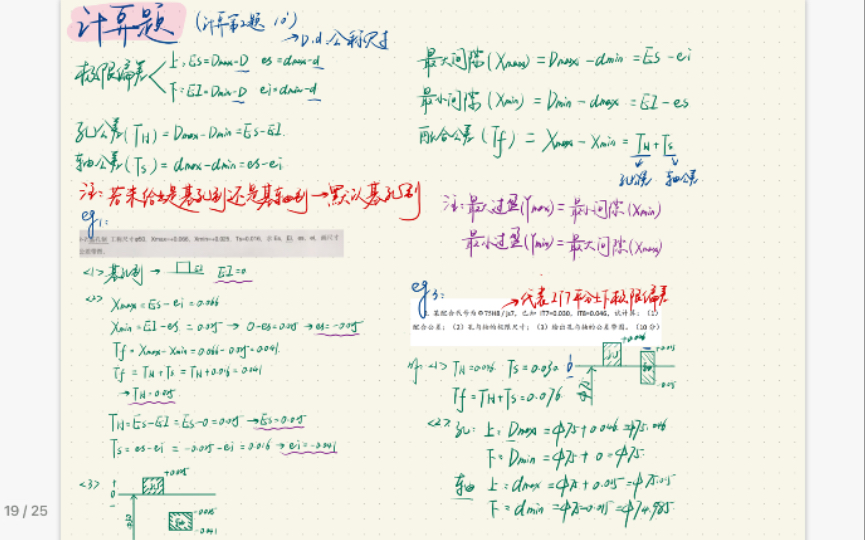 计算题 (计算第2题 10')
→D.d.公称尺寸
极限偏差 上:Es=Dmax-D es=dmax-d
下:EI=Dmin-D ei=dmin-d
孔公差(TH)=Dmax-Dmin=Es-EI.
轴公差(Ts)=dmax-dmin=es-ei
注:若未给出是基孔制还是基轴制→默认基孔制
eg1:
<1>基孔制→ EI EI=0
<2>
Xmax=Es-ei=0.066
Xmin=EI-es=0.025→0-es=0.025→es=-0.025
Tf=Xmax-Xmin=0.066-0.025=0.041.
Tf=TH+Ts=TH+0.016=0.041
→TH=0.025
TH=Es-EI=Es-0=0.025→Es=0.025
Ts=es-ei=-0.025-ei=0.016→ei=-0.041
<3>
+0.025
+
0
-
-0.025
-0.041
最大间隙(Xmax)=Dmax-dmin=Es-ei
最小间隙(Xmin)=Dmin-dmax=EI-es
配合公差(Tf)=Xmax-Xmin=TH+Ts
孔公差 轴公差
注:最大过盈(Ymax)=最小间隙(Xmin)
最小过盈(Ymin)=最大间隙(Xmax)
eg3:
→代表IT7平分上下极限偏差
某配合代号为Φ75H8/js7,已知 IT7=0.030,IT8=0.046,试计算:(1)
配合公差;(2)孔与轴的极限尺寸;(3)绘出孔与轴的公差带图。(10分)
<1>TH=0.046 Ts=0.030
Tf=TH+Ts=0.076
+0.046
+0.015
-0.015
<2>孔:上:Dmax=Φ75+0.046=Φ75.046
下:Dmin=Φ75+0=Φ75
轴 上=dmax=Φ75+0.015=Φ75.015
下=dmin=Φ75-0.015=Φ74.985
19 / 25